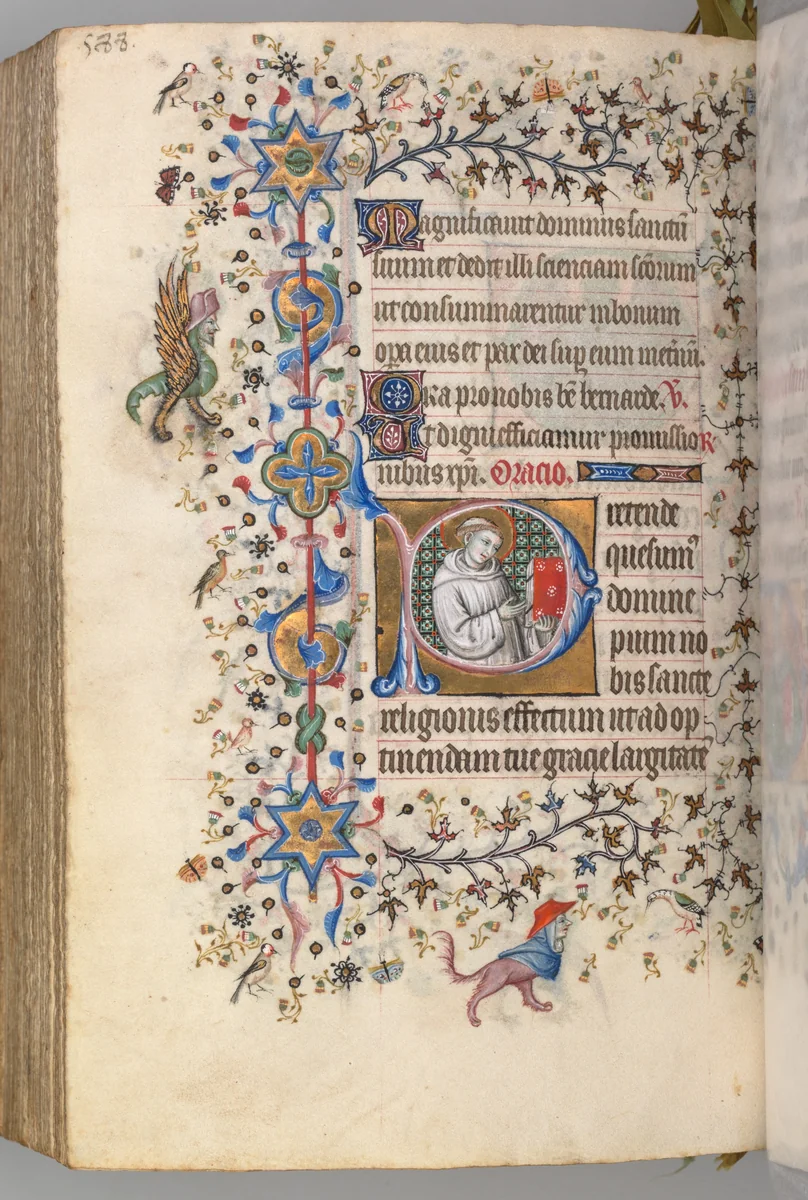 588.
Magnificauit dominus sanctū
suum et dedit illi scienciam scōrum
ut consummarentur in bonum
opa eius et pax dei sup eum
Ora pro nobis bē bernarde. V̄.
Et digni efficiamur promissio R
nibus xpī. Oracio.
Pretende
quesum9
domine
pium no
bis sancte
religionis effectum ut ad op
tinendam tue gracie largitatē